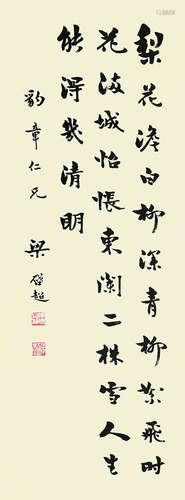 梨花澹白柳深青柳絮飛时
花滿城怊悵東闌二株雪人生
能得幾清明
豹章仁兄
梁啓超